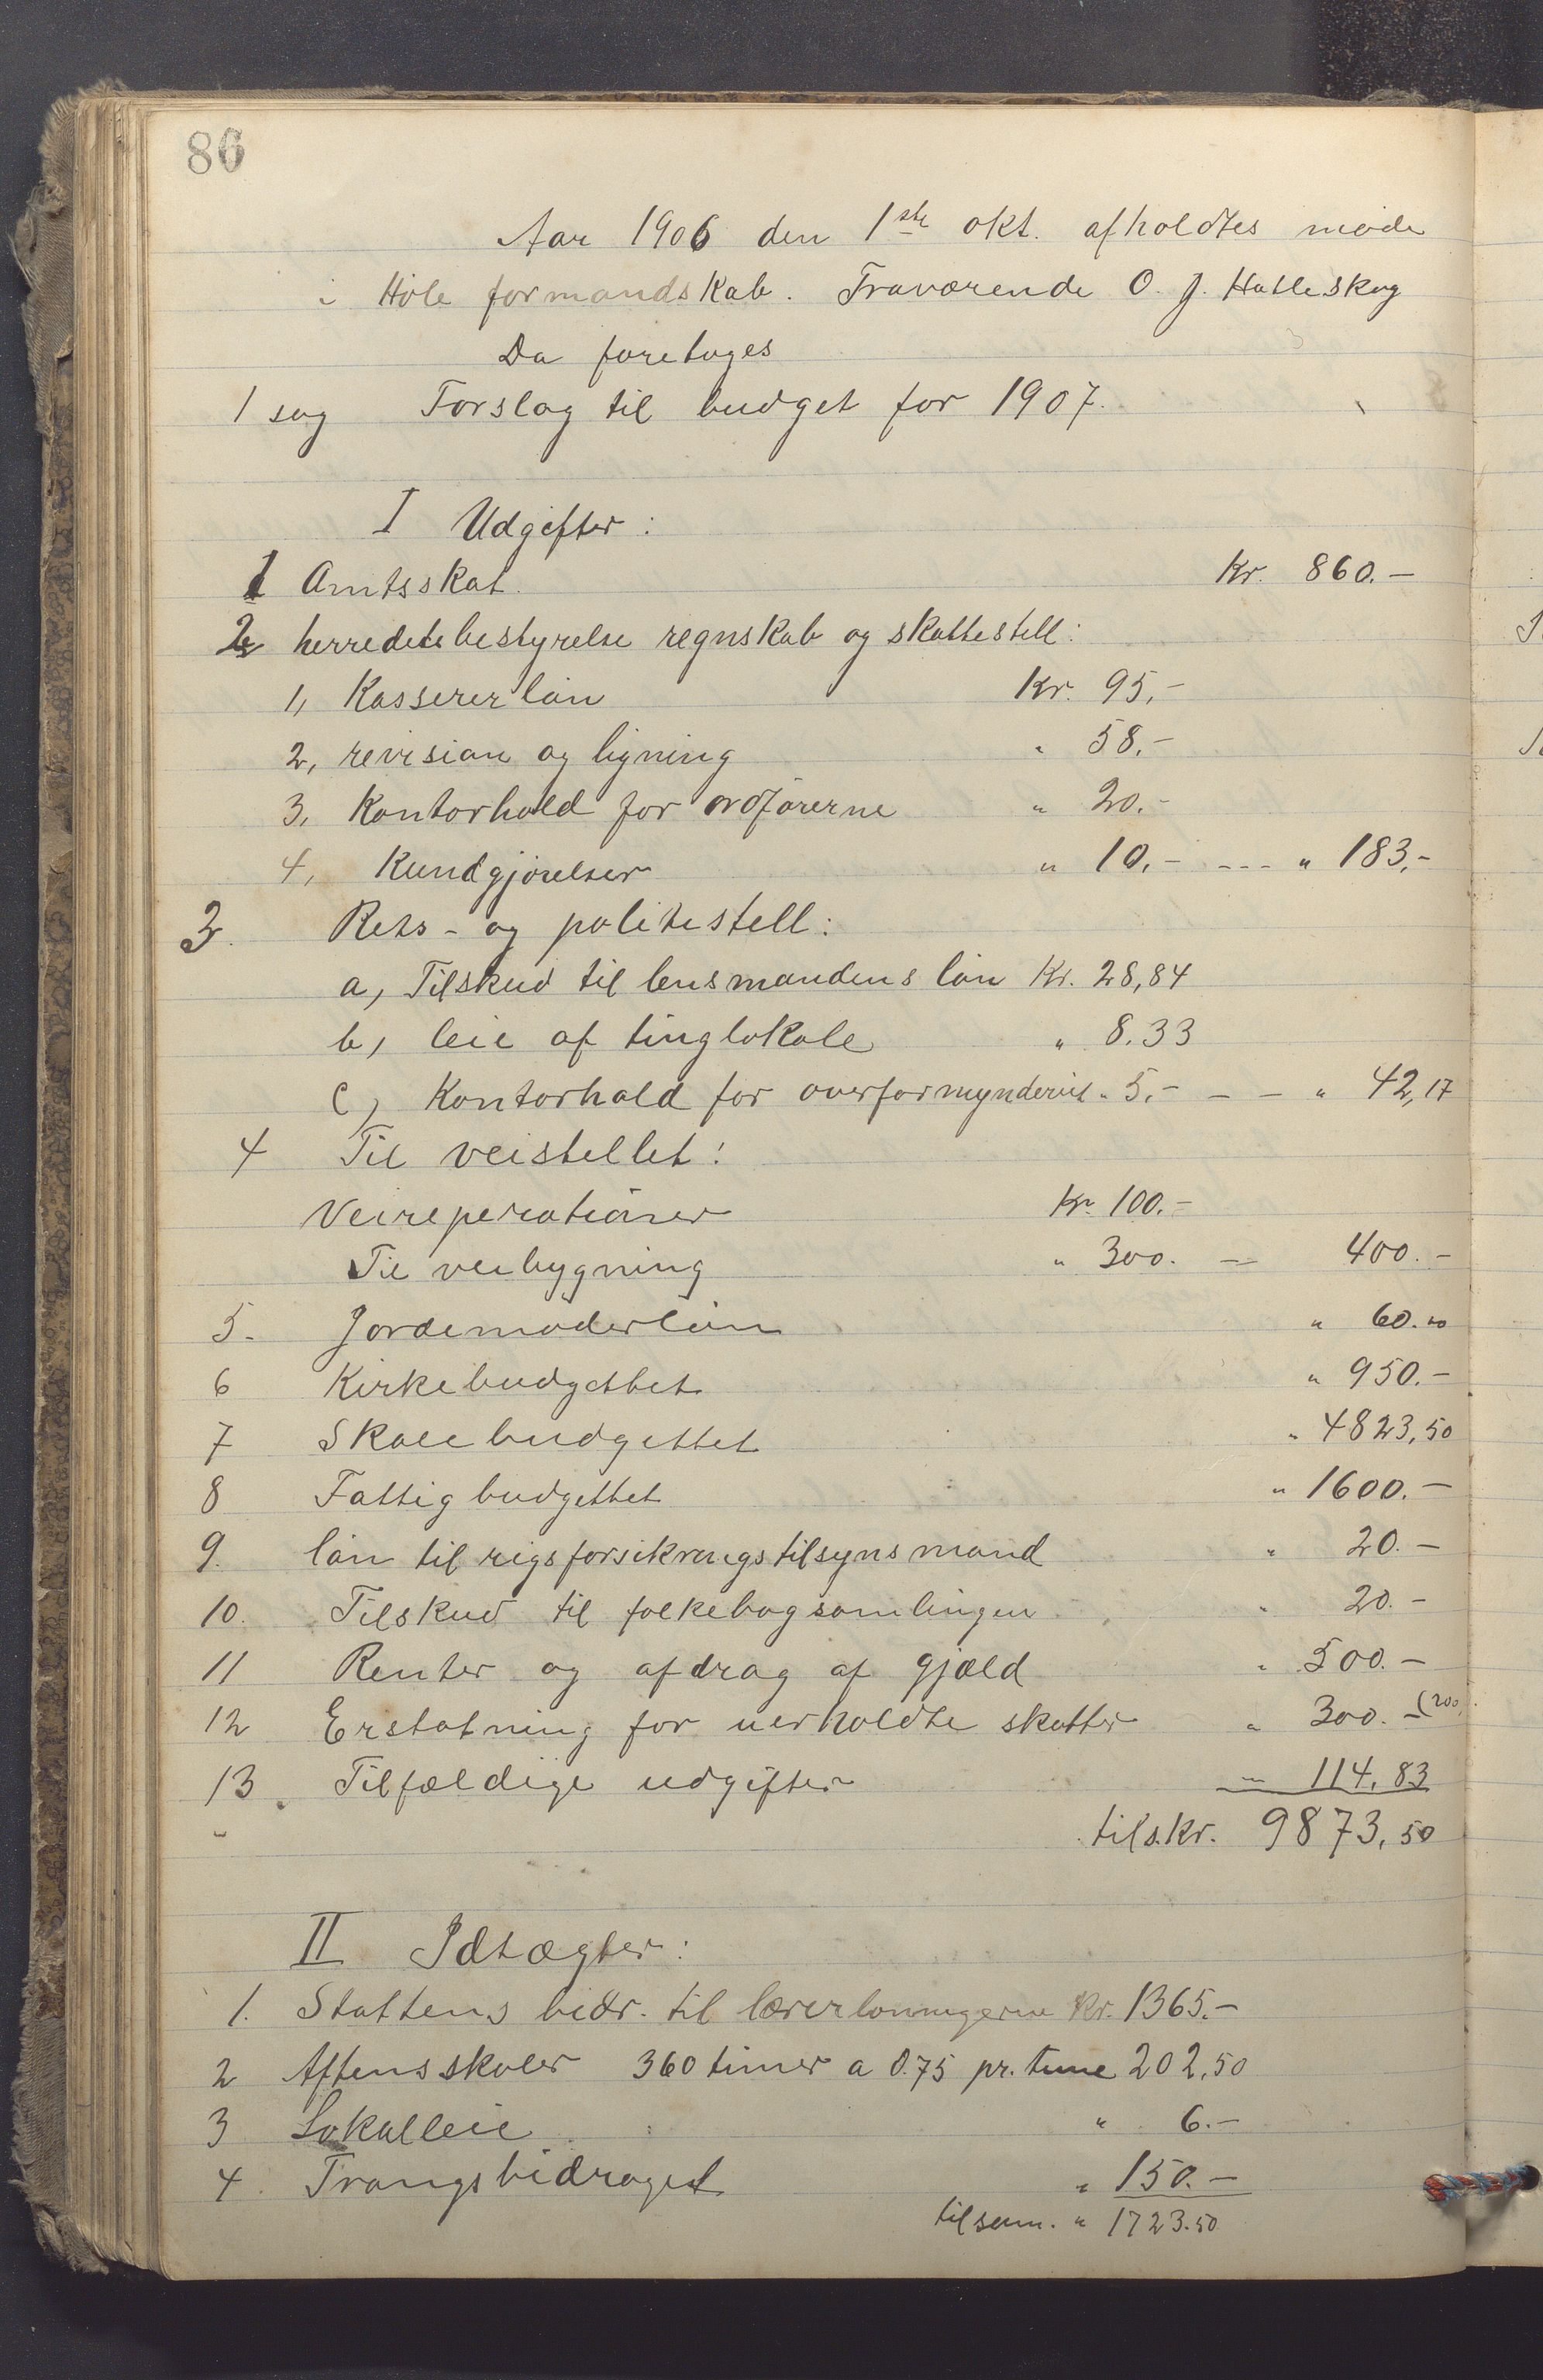 86
Aar 1906 den 1ste okt. afholdtes møde
i Høle formandskab. Fraværende O. J. Hatleskog
Da foretoges
1 sag Forslag til budget for 1907.
I Udgifter:
1 Amtsskat. Kr. 860.-
2 herredsbestyrelse regnskab og skattestell:
1, Kassererløn Kr. 95,-
2, revision og ligning " 58,-
3, Kontorhold for ordførerne " 20.-
4, Kundgjørelser " 10,- --- " 183,-
3. Rets- og politistell:
a, Tilskud til lensmandens løn Kr. 28,84
b, leie af tinglokale " 8.33
c, Kontorhold for overformynderiet " 5,- - - " 42,17
4 Til veistellet:
Veireperationer Kr 100.-
Til veibygning " 300. - 400.-
5. Jordemoderløn " 60.00
6 Kirkebudgettet " 950.-
7 Skolebudgettet " 4823,50
8 Fattigbudgettet " 1600.-
9. løn til rigsforsikrings tilsynsmand " 20.-
10. Tilskud til folkebogsamlingen " 20.-
11 Renter og afdrag af gjæld " 500.-
12 Erstatning for uerholdte skatter " 300.- (200.
13. Tilfældige udgifter " 114,83
tils.kr. 9873,50
II Idtægter:
1. Stattens bidr. til lærerlønningerne Kr. 1365.-
2 Aftensskoler 360 timer a 0.75 pr. time 202,50
3 Lokalleie " 6.-
4. Trangsbidraget " 150.-
tilsam. " 1723.50